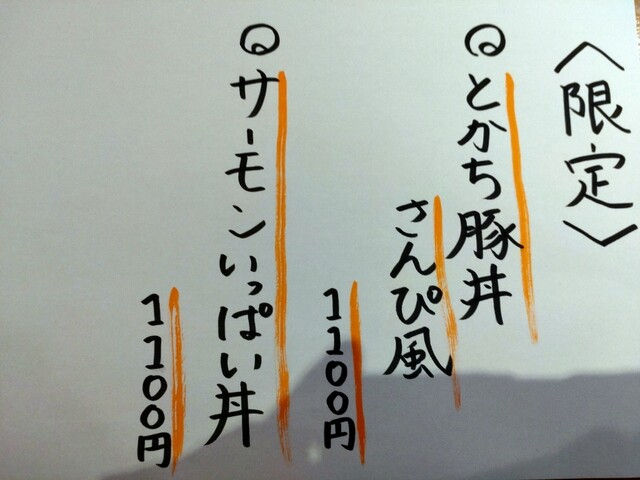 〈限定〉
◎とかち豚丼
さんぴ風
1100円
◎サーモンいっぱい丼
1100円